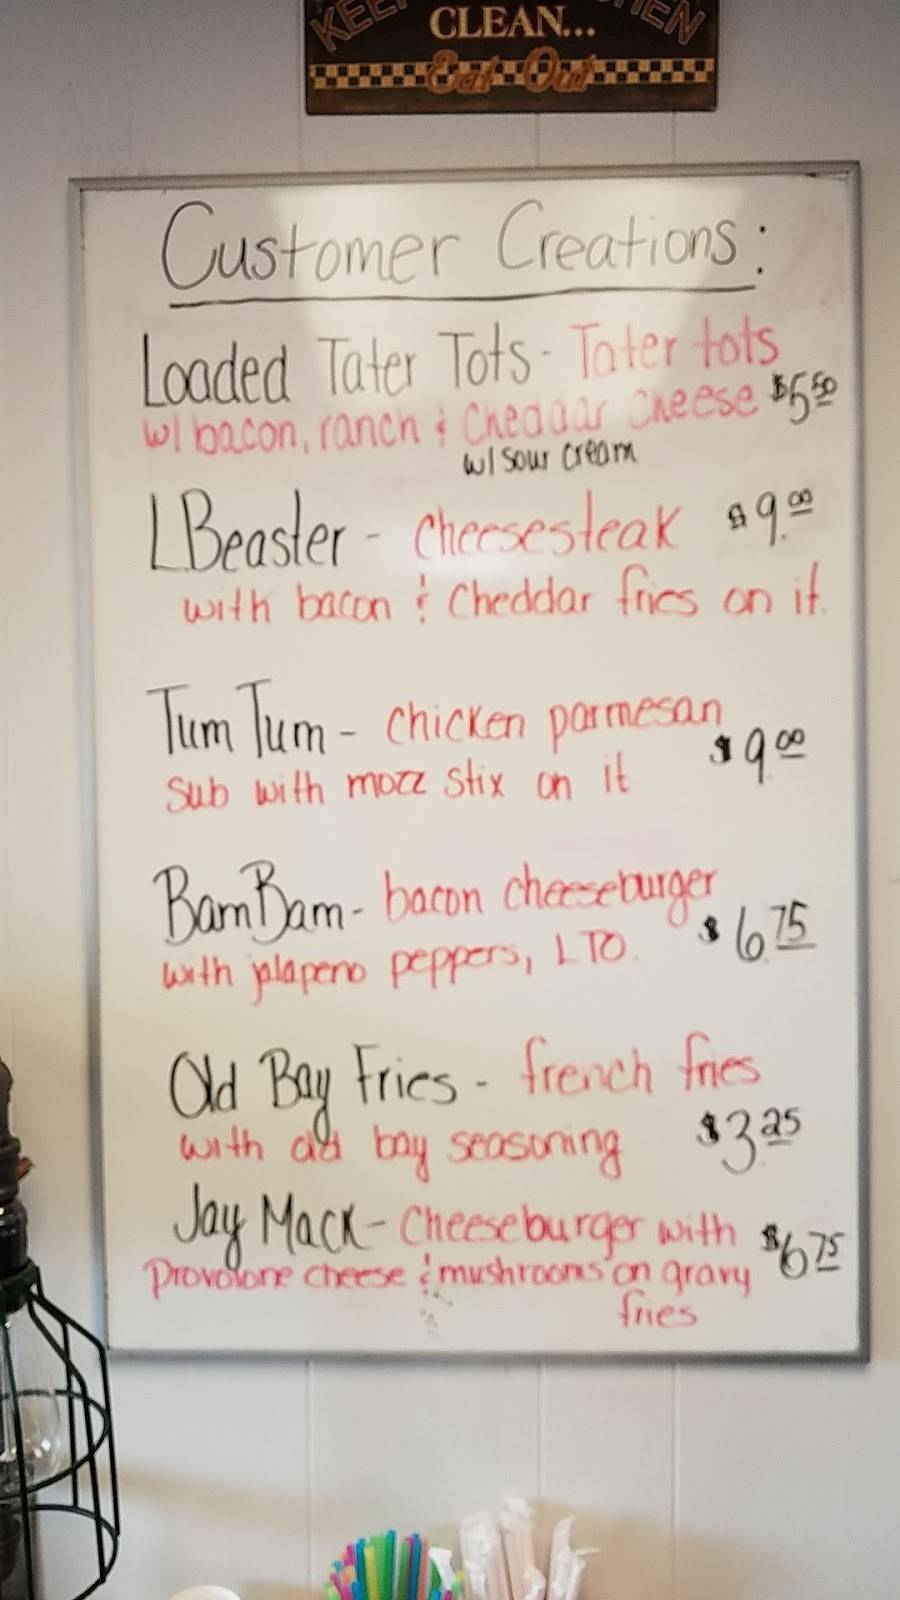 CLEAN...
Eat Out
Customer Creations:
Loaded Tater Tots - Tater tots
w/ bacon, ranch & Cheddar Cheese $5.50
w/ sour cream
LBeaster - Cheesesteak $9.00
with bacon & Cheddar fries on it.
Tum Tum - chicken parmesan
Sub with mozz stix on it $9.00
BamBam - bacon cheeseburger
with jalapeno peppers, LTO. $6.75
Old Bay Fries - french fries
with old bay seasoning $3.25
Jay Mack - Cheeseburger with $6.75
Provolone cheese & mushrooms on gravy
fries